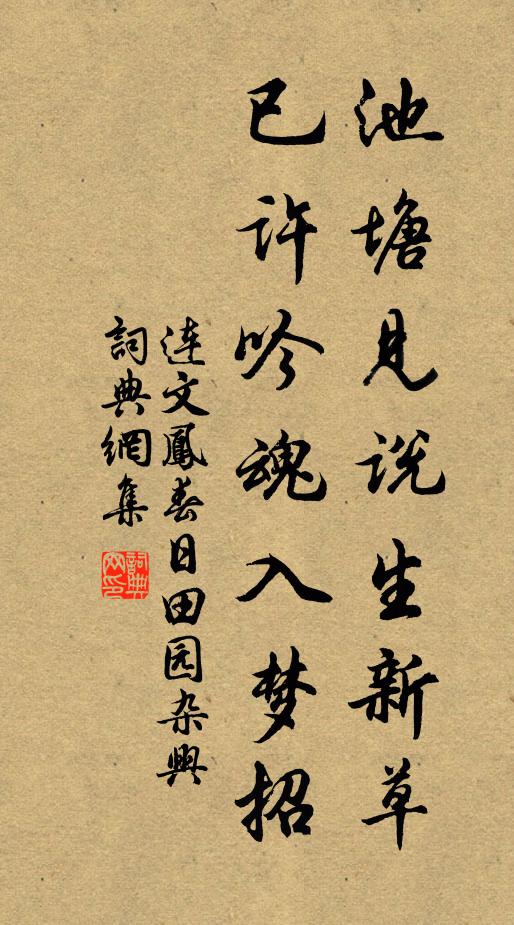 池塘见说生新草
已许吟魂入梦招
连文鳳春日田园杂興
詞典網集
詞典網印